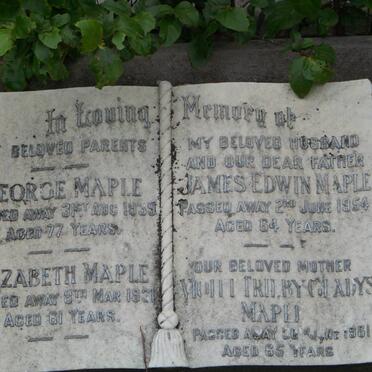 In Loving Memory of
BELOVED PARENTS
EORGE MAPLE
ED AWAY 31ST AUG 1935
AGED 77 YEARS.
IZABETH MAPLE
ED AWAY 9TH MAR 1921
AGED 61 YEARS.
MY BELOVED HUSBAND
AND OUR DEAR FATHER
JAMES EDWIN MAPLE
PASSED AWAY 2ND JUNE 1954
AGED 64 YEARS.
YOUR BELOVED MOTHER
TRILBY GLADYS
MAPLE
PASSED AWAY JUNE 1961
AGED 65 YEARS